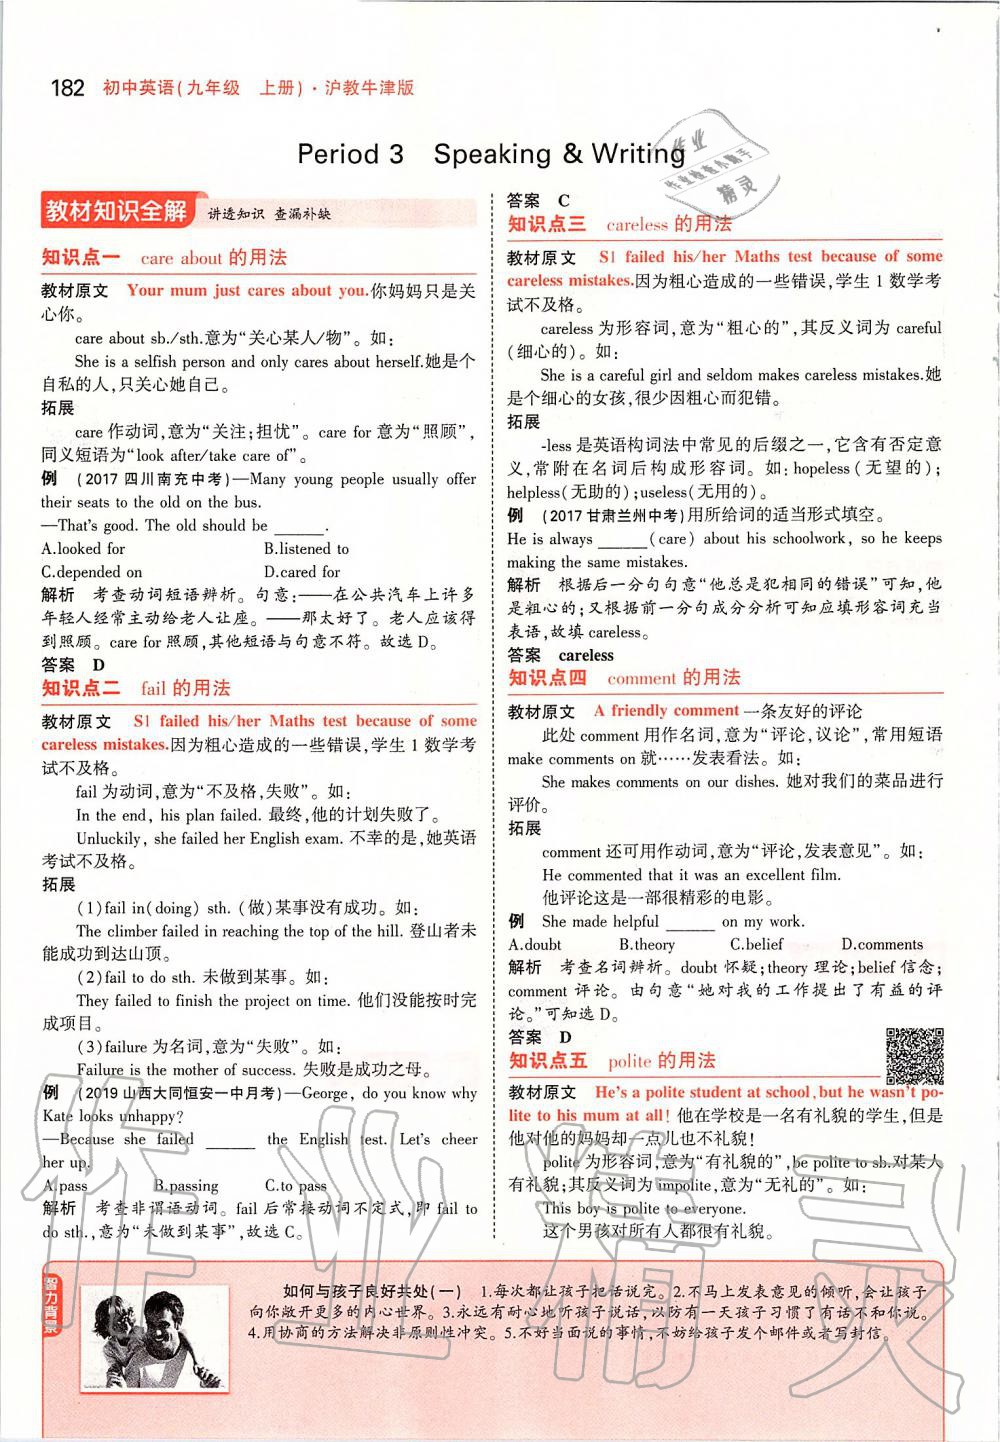 182 初中英语(九年级 上册)·沪教牛津版
Period 3 Speaking & Writing
教材知识全解 讲透知识 查漏补缺
知识点一 care about 的用法
教材原文 Your mum just cares about you.你妈妈只是关
心你。
care about sb./sth.意为“关心某人/物”。如:
She is a selfish person and only cares about herself.她是个
自私的人,只关心她自己。
拓展
care 作动词,意为“关注;担忧”。care for 意为“照顾”,
同义短语为“look after/take care of”。
例 (2017 四川南充中考)—Many young people usually offer
their seats to the old on the bus.
—That's good. The old should be ______.
A.looked for B.listened to
C.depended on D.cared for
解析 考查动词短语辨析。句意:——在公共汽车上许多
年轻人经常主动给老人让座。——那太好了。老人应该得
到照顾。care for 照顾,其他短语与句意不符。故选 D。
答案 D
知识点二 fail 的用法
教材原文 S1 failed his/her Maths test because of some
careless mistakes.因为粗心造成的一些错误,学生 1 数学考
试不及格。
fail 为动词,意为“不及格,失败”。如:
In the end, his plan failed. 最终,他的计划失败了。
Unluckily, she failed her English exam. 不幸的是,她英语
考试不及格。
拓展
(1)fail in(doing) sth. (做)某事没有成功。如:
The climber failed in reaching the top of the hill. 登山者未
能成功到达山顶。
(2)fail to do sth. 未做到某事。如:
They failed to finish the project on time. 他们没能按时完
成项目。
(3)failure 为名词,意为“失败”。如:
Failure is the mother of success. 失败是成功之母。
例 (2019 山西大同恒安一中月考)—George, do you know why
Kate looks unhappy?
—Because she failed ______ the English test. Let's cheer
her up.
A.pass B.passing C.to pass
解析 考查非谓语动词。fail 后常接动词不定式,即 fail to
do sth.,意为“未做到某事”,故选 C。
答案 C
知识点三 careless 的用法
教材原文 S1 failed his/her Maths test because of some
careless mistakes.因为粗心造成的一些错误,学生 1 数学考
试不及格。
careless 为形容词,意为“粗心的”,其反义词为 careful
(细心的)。如:
She is a careful girl and seldom makes careless mistakes.她
是个细心的女孩,很少因粗心而犯错。
拓展
-less 是英语构词法中常见的后缀之一,它含有否定意
义,常附在名词后构成形容词。如:hopeless(无望的);
helpless(无助的);useless(无用的)。
例 (2017 甘肃兰州中考)用所给词的适当形式填空。
He is always ______(care) about his schoolwork, so he keeps
making the same mistakes.
解析 根据后一分句句意“他总是犯相同的错误”可知,他
是粗心的;又根据前一分句成分分析可知应填形容词充当
表语,故填 careless。
答案 careless
知识点四 comment 的用法
教材原文 A friendly comment 一条友好的评论
此处 comment 用作名词,意为“评论,议论”,常用短语
make comments on 就……发表看法。如:
She makes comments on our dishes. 她对我们的菜品进行
评价。
拓展
comment 还可用作动词,意为“评论,发表意见”。如:
He commented that it was an excellent film.
他评论这是一部很精彩的电影。
例 She made helpful ______ on my work.
A.doubt B.theory C.belief D.comments
解析 考查名词辨析。doubt 怀疑;theory 理论;belief 信念;
comment 评论。由句意“她对我的工作提出了有益的评
论。”可知选 D。
答案 D
知识点五 polite 的用法
教材原文 He's a polite student at school, but he wasn't po-
lite to his mum at all! 他在学校是一名有礼貌的学生,但是
他对他的妈妈却一点儿也不礼貌!
polite 为形容词,意为“有礼貌的”,be polite to sb.对某人
有礼貌;其反义词为 impolite,意为“无礼的”。如:
This boy is polite to everyone.
这个男孩对所有人都很有礼貌。
智力背景
如何与孩子良好共处(一) 1.每次都让孩子把话说完。2.不马上发表意见的倾听,会让孩子
向你敞开更多的内心世界。3.永远有耐心地听孩子说话,以防有一天孩子习惯了有话不和你说。
4.用协商的方法解决非原则性冲突。5.不好当面说的事情,不妨给孩子发个邮件或者写封信。
作业
作业检查小助手
精灵
作业精灵